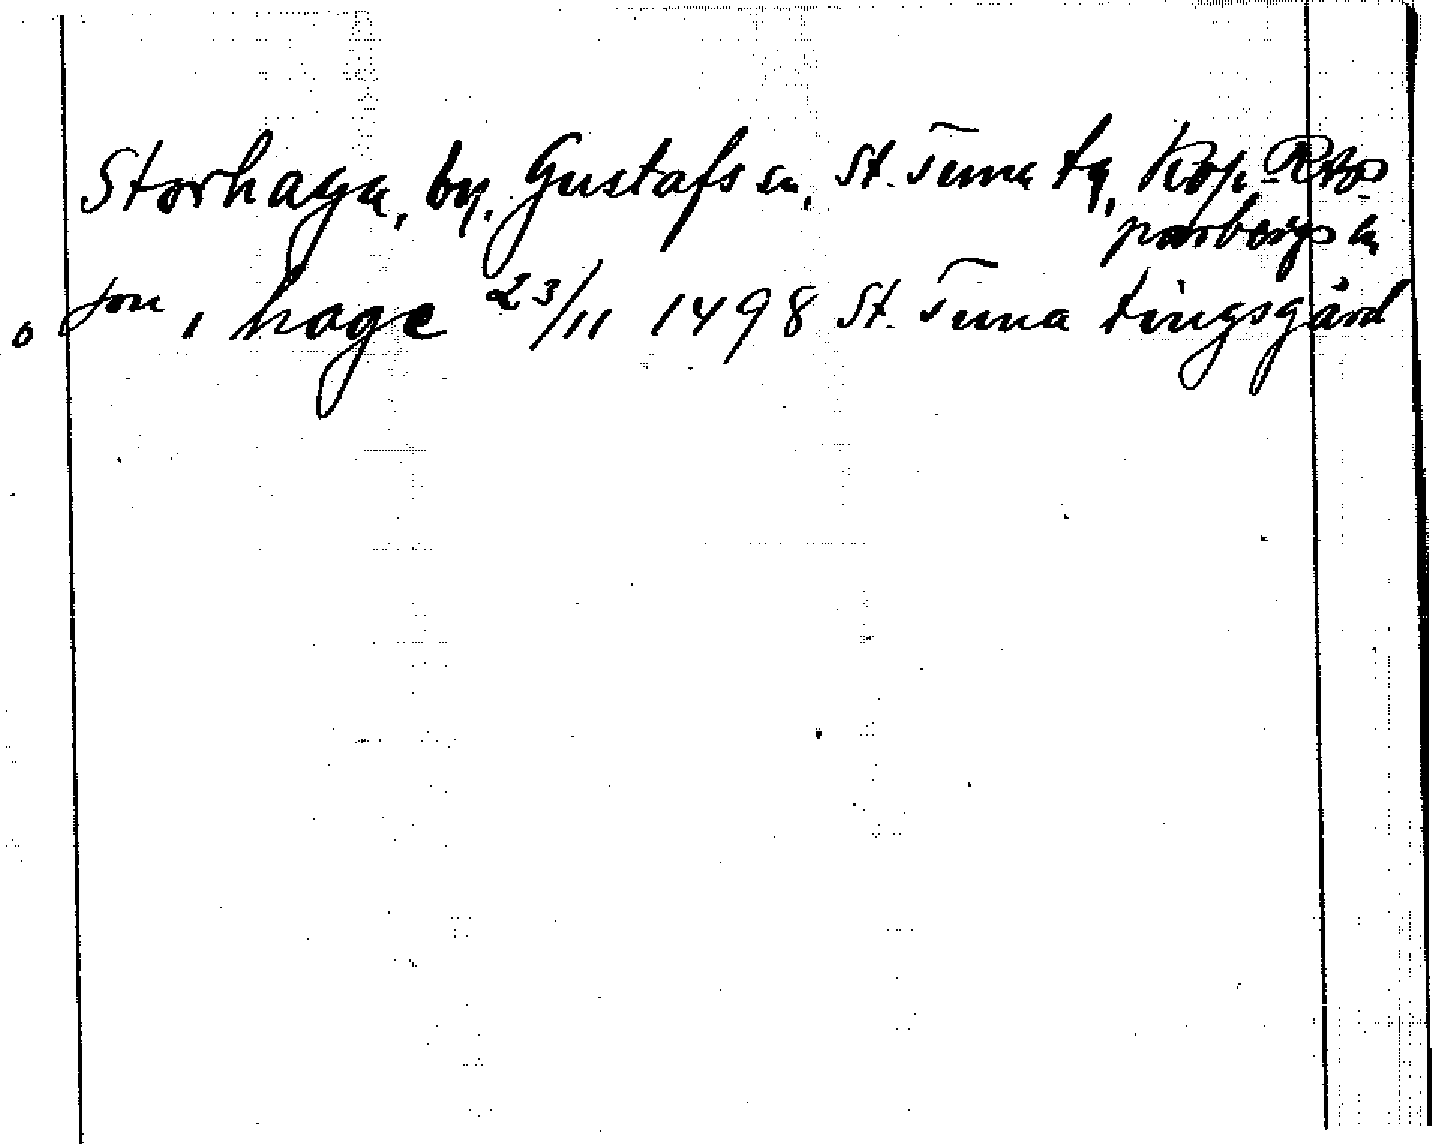 Storhaga, by, Gustafs sn, St. Tuna tg, Kop-
parbergs län
o jon i hage 23/11 1498 St. Tuna tingsgård